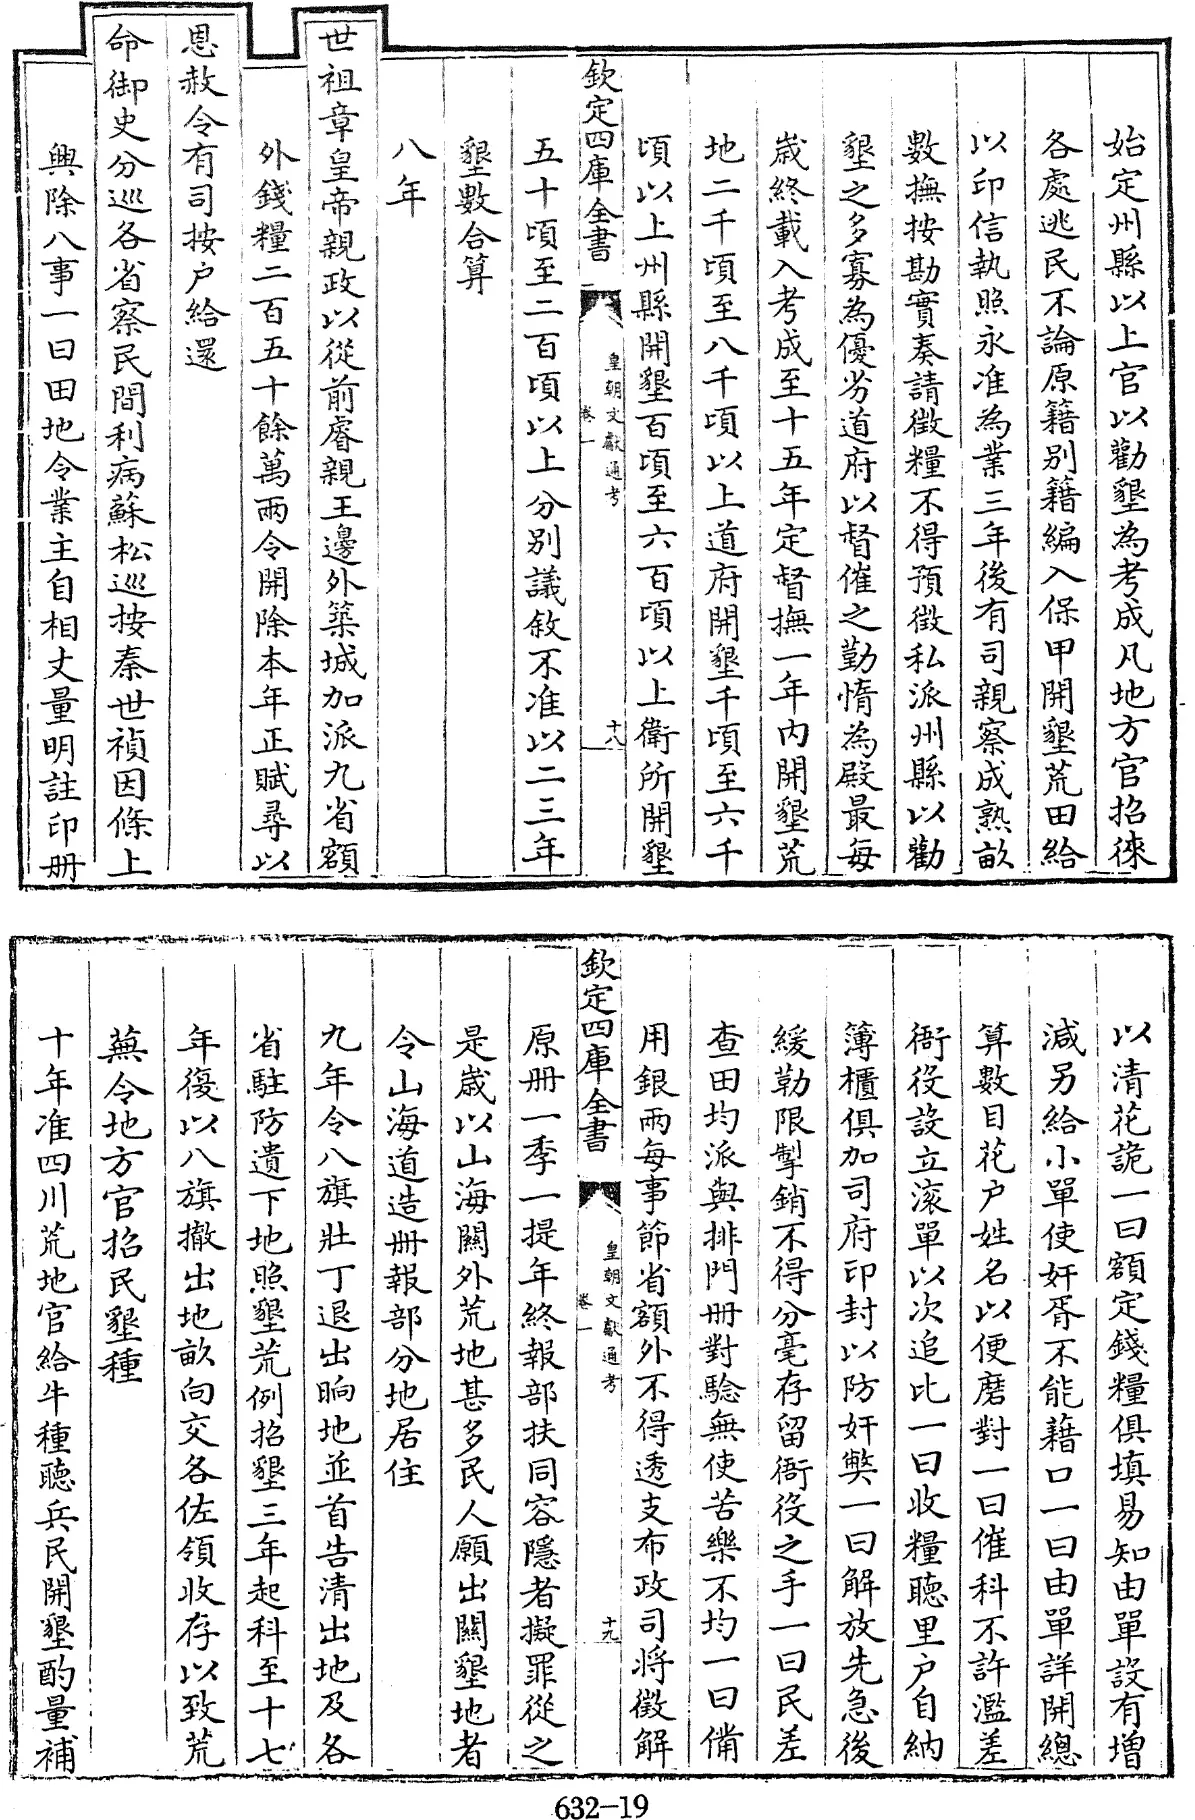 始定州縣以上官以勸墾為考成凡地方官招徠
各處逃民不論原籍別籍編入保甲開墾荒田給
以印信執照永准為業三年後有司親察成熟畝
數撫按勘實奏請徵糧不得預徵私派州縣以勸
墾之多寡為優劣道府以督催之勤惰為殿最每
歲終載入考成至十五年定督撫一年內開墾荒
地二千頃至八千頃以上道府開墾千頃至六千
頃以上州縣開墾百頃至六百頃以上衛所開墾
欽定四庫全書
皇朝文獻通考
卷一
十八
五十頃至二百頃以上分別議敘不准以二三年
墾數合算
八年
世祖章皇帝親政以從前睿親王邊外築城加派九省額
外錢糧二百五十餘萬兩令開除本年正賦尋以
恩赦令有司按户給還
命御史分巡各省察民間利病蘇松巡按秦世禎因條上
興除八事一曰田地令業主自相丈量明註印冊
以清花詭一曰額定錢糧俱填易知由單設有增
減另給小單使奸胥不能藉口一曰由單詳開總
算數目花户姓名以便磨對一曰催科不許濫差
衙役設立滚單以次追比一曰收糧聽里户自納
簿櫃俱加司府印封以防奸弊一曰解放先急後
緩勒限掣銷不得分毫存留衙役之手一曰民差
查田均派與排門冊對騐無使苦樂不均一曰備
用銀兩每事節省額外不得透支布政司將徵解
欽定四庫全書
皇朝文獻通考
卷一
十九
原冊一季一提年終報部扶同容隱者擬罪從之
是歲以山海關外荒地甚多民人願出關墾地者
令山海道造冊報部分地居住
九年令八旗壯丁退出晌地並首告清出地及各
省駐防遺下地照墾荒例招墾三年起科至十七
年復以八旗撤出地畝向交各佐領收存以致荒
蕪令地方官招民墾種
十年准四川荒地官給牛種聽兵民開墾酌量補
632-19